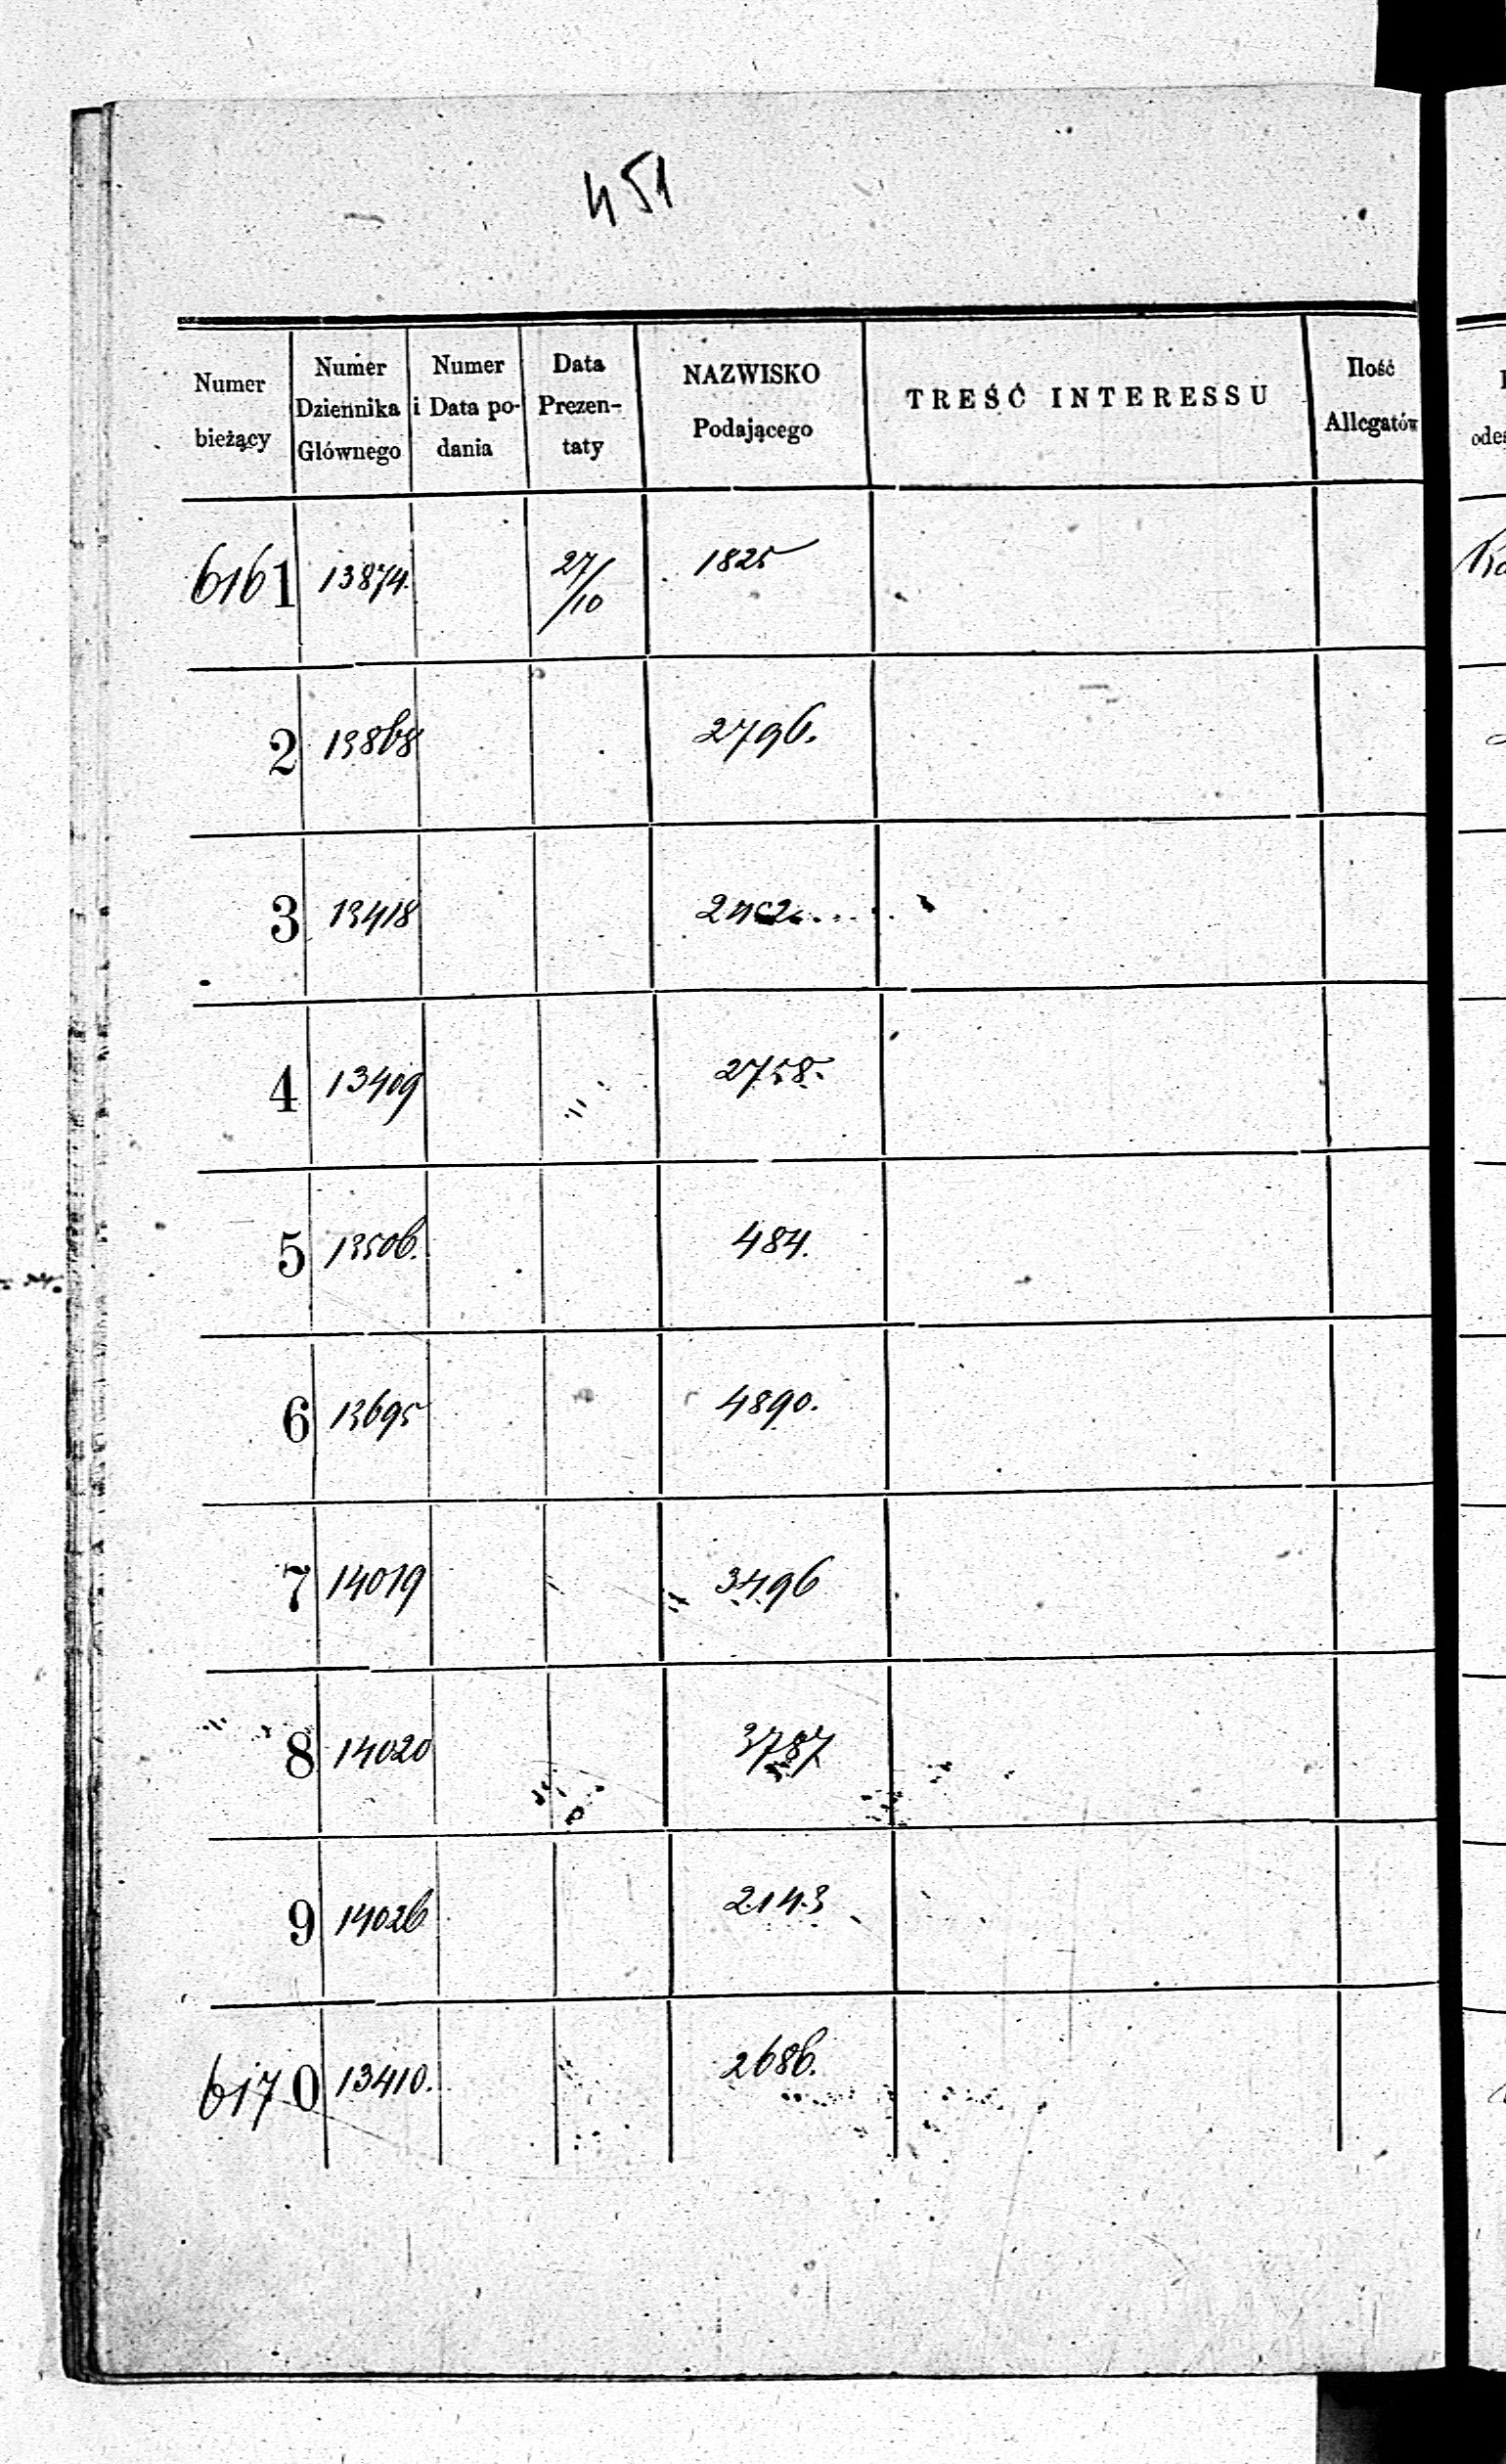 451
Numer bieżący | Numer Dziennika Głównego | Numer i Data podania | Data Prezentaty | NAZWISKO Podającego | TREŚĆ INTERESSU | Ilość Allegatów
6161 13874. 27/10 1825
2 13868 2796.
3 13418
4 13409 2758.
5 13506. 484.
6 13695 4890.
7 14019 3496
8 14020 3787
9 14026 2143
6170 13410. 2686.